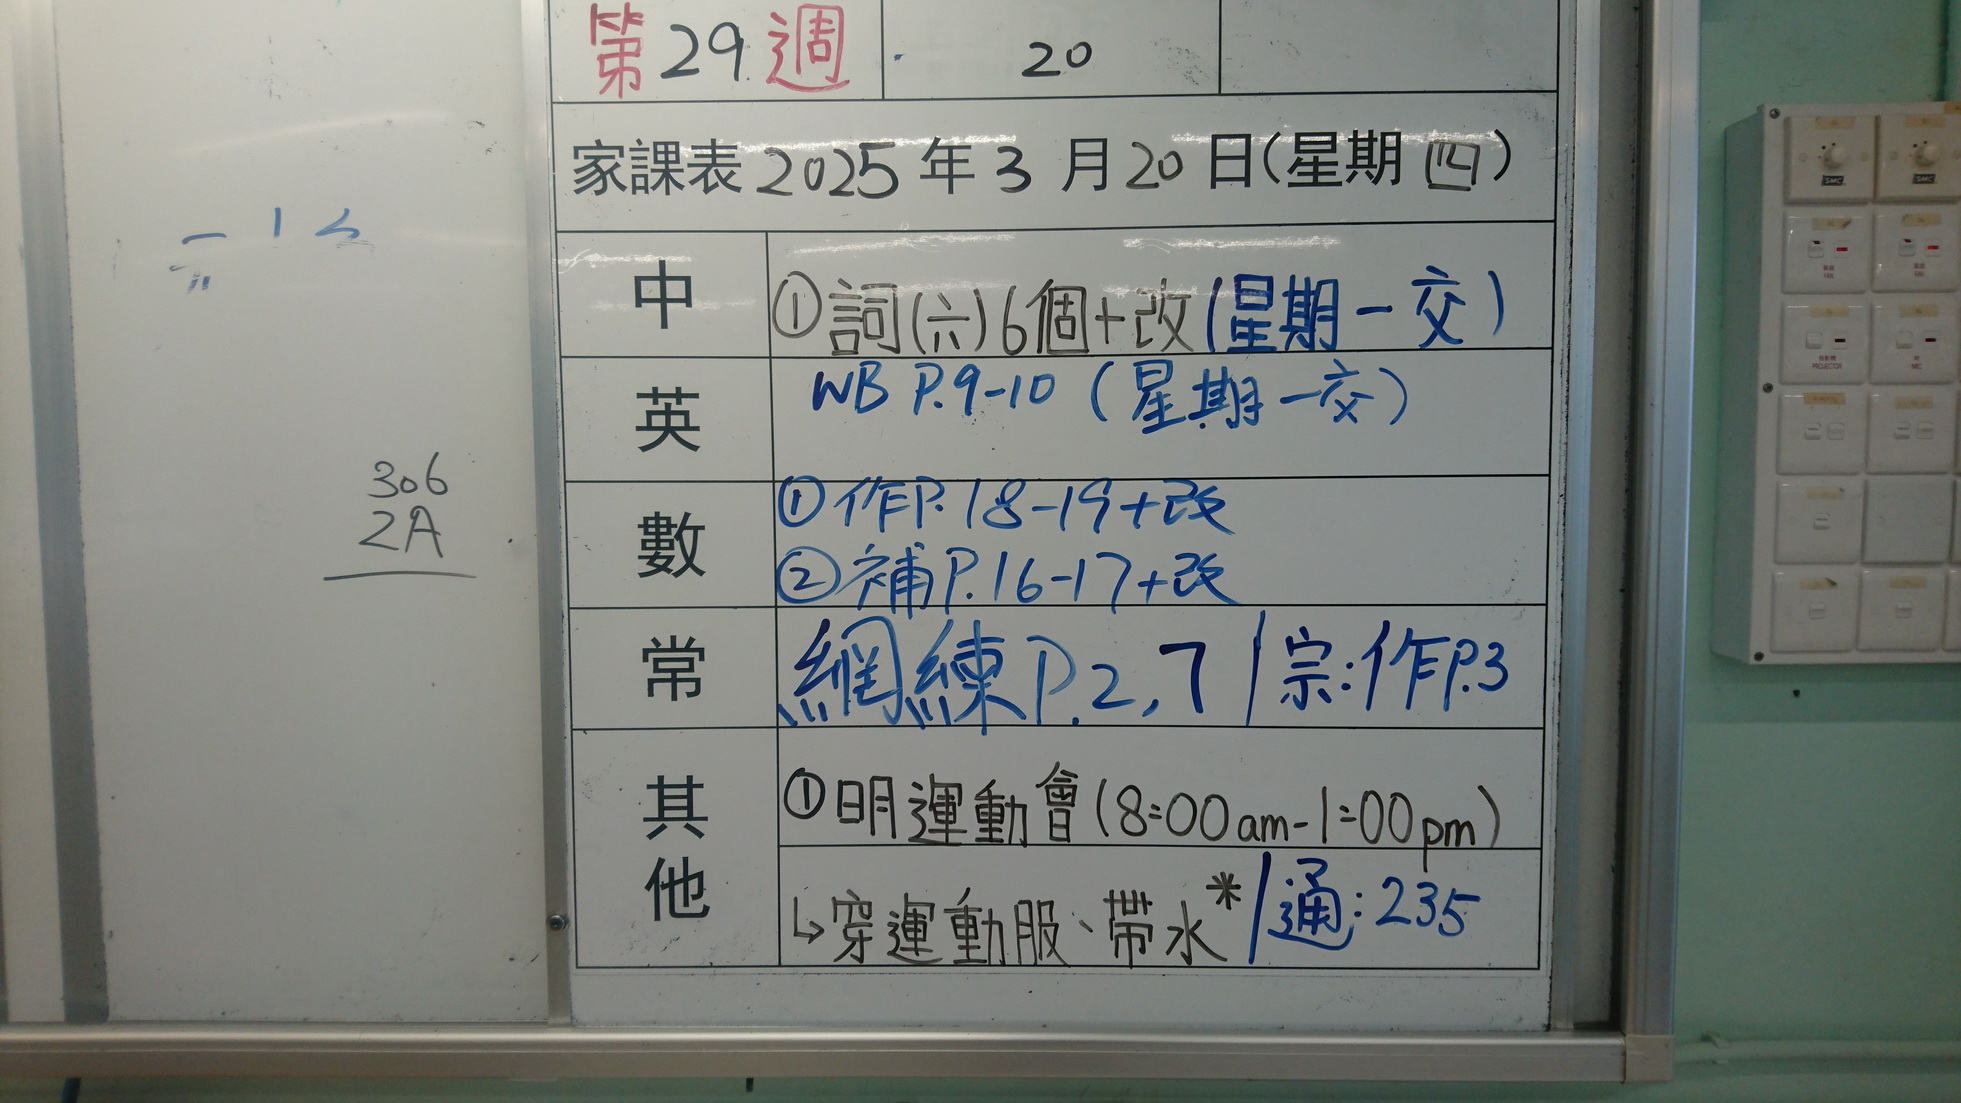 第29週
20
家課表2025年3月20日(星期四)
中
①詞(六)6個+改(星期一交)
英
WB P.9-10 (星期一交)
數
①作P.18-19+改
②補P.16-17+改
常
網練P.2,7/宗:作P.3
其他
①明運動會(8:00am-1:00pm)
↳穿運動服、帶水*/通:235
306
2A